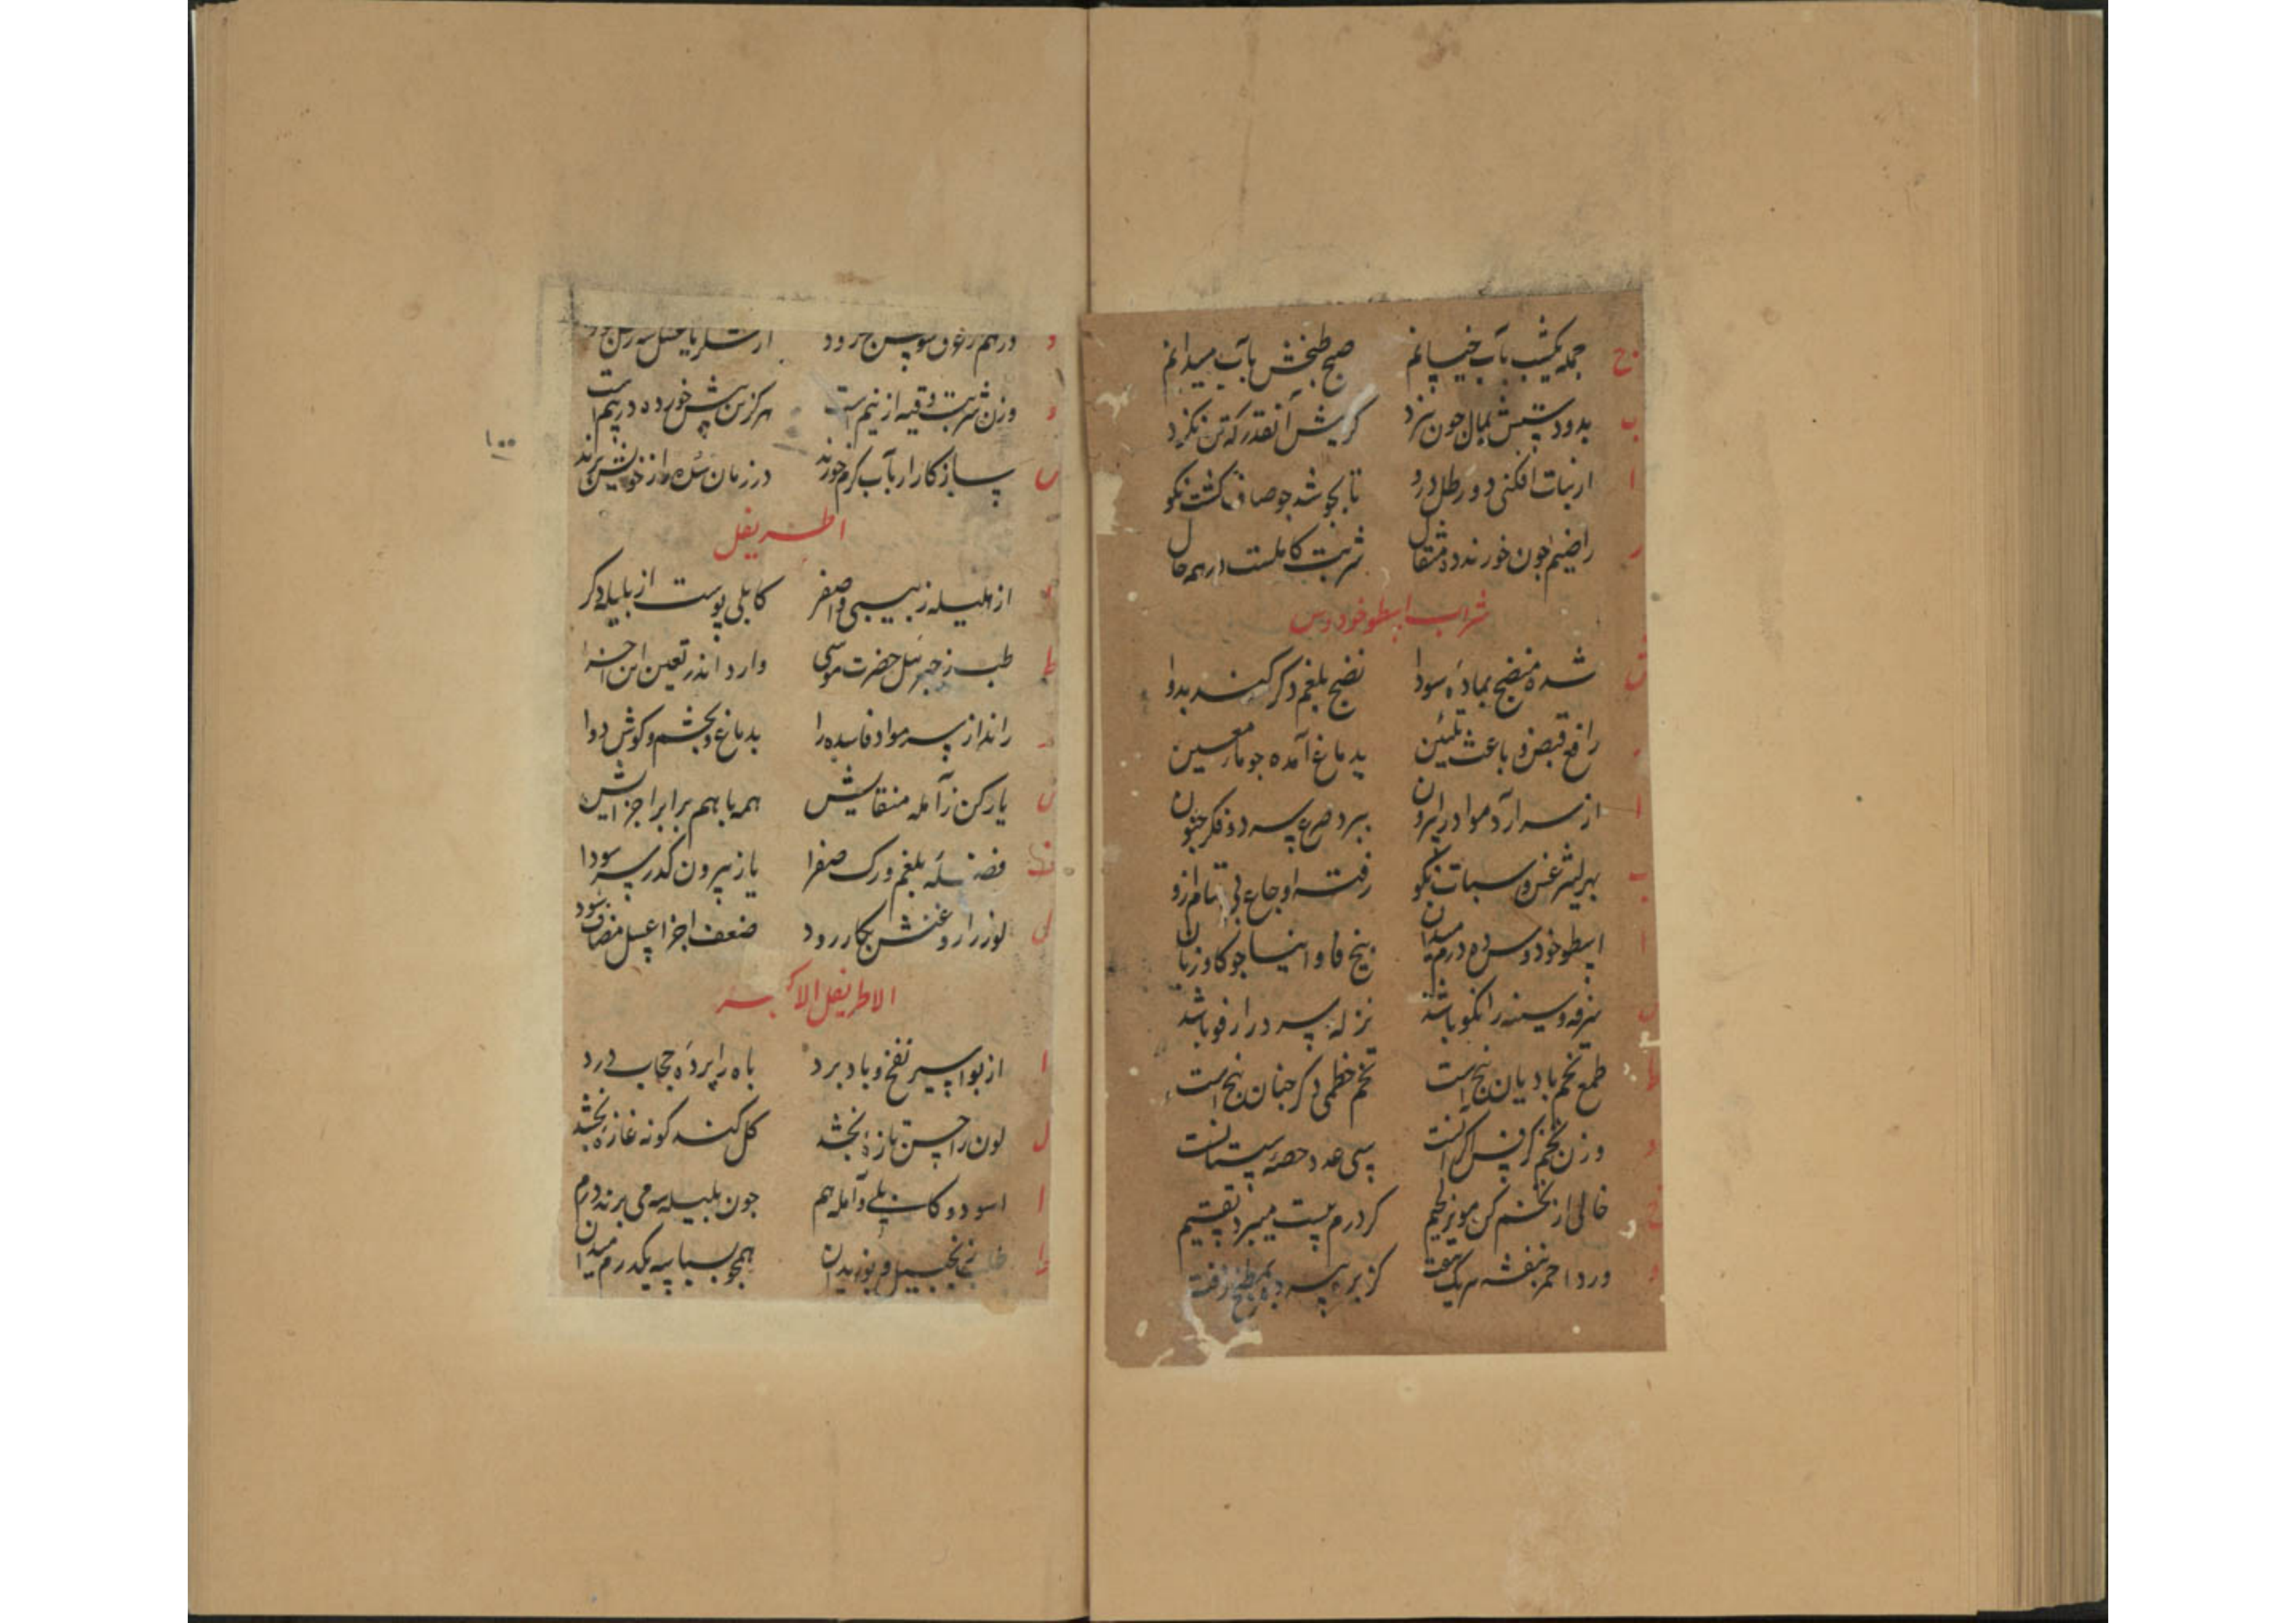 ح جمله یکشب بآب خیسانم صبح طبخش بآب میدانم
ب بدو دستش بمال جون بپزد کریش آنقدر که تن نکزد
ا از نبات افکنی دو رطل درو تا بجوشد جو صاف کشت نکو
ر راضیم جون خورند ده مثقال شربت کاملست در همه حال
شراب اسطوخودوس
ش شده منضج بمادۀ سودا نضج بلغم دکر کنند بدوا
ر رافع قبض و باعث تلیین بدماغ آمده جو ماء معین
ا از سر آرد مواد را بیرون ببرد صرع سر و فکر جنون
ب بهر لیثرغس و سبات نکو رفته اوجاع تمام ازو
ا اسطوخودوس ده درم میدان بیخ فاوانیا جو کاوزبان
س سرفه و سینه را نکو باشد نزله سرد را رفو باشد
ط طمع تخم بادیان پنج است تخم خطمی دکر جنان پنج است
و وزن تخم کرفس سی عدد حصۀ سپستانست
خ خالی از تخم کن مویز لحیم کز درم بیست میبرد تقسیم
و ورد احمر بنفشه هر یک هفت کزبره سه بمطبخ رفت
د درهم
و وزن شربت وقیه از نیم است هر کزین بیش خورده در بیم است
س ساز کار آر بآب کرم خورند در زمان سده را ز خویش برند
۱۰۰
اطریفل
ا از هلیله زبیبی و اصفر کابلی پوست از بلیله دکر
ط طب ز جبرئیل حضرت موسی وارد اندر تعین این اجزا
ر راند از سر مواد فاسده را بدماغ و بچشم و کوش دوا
ی یار کن ز آمله منقایش همه با هم برابر اجزایش
ف فضلۀ بلغم و رک صفرا باز بیرون کند ز سر سودا
ل لوز را روغنش بکار رود ضعف اجزا عسل مضاف شود
الاطریفل الاکبر
ا از بواسیر نفخ و باد برد باه را پردۀ حجاب درد
ل لون را حسن تازه بخشد کل کند کونه غازه بخشد
ا اسود و کابلی و آمله هم جون بلیله سه می برند درم
ط زنجبیل و بوزیدان همجو بسباسه یکدرم میدان